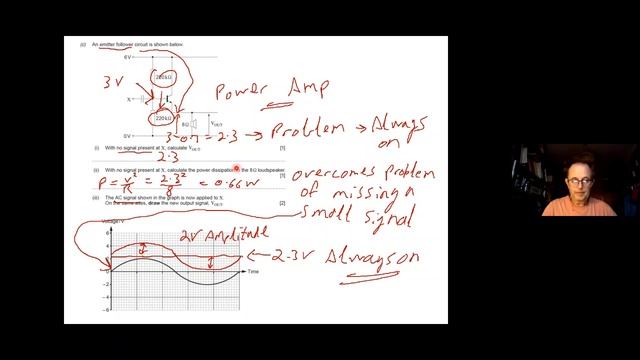 (c) An emitter follower circuit is shown below.
6V
3V
220kΩ
X
220kΩ
8Ω
V OUT
0V
Power Amp
3-0.7 = 2.3 → Problem → Always on
(i) With no signal present at X, calculate V OUT [1]
2.3
(ii) With no signal present at X, calculate the power dissipation in the 8Ω loudspeaker. [1]
P = V²/R = 2.3²/8 = 0.66W
overcomes problem of missing a small signal
(iii) The AC signal shown in the graph is now applied to X.
On the same axes, draw the new output signal, V OUT [2]
Voltage/V
2V Amplitude
6
4
2
0
-2
-4
-6
Time
← 2.3V Always on